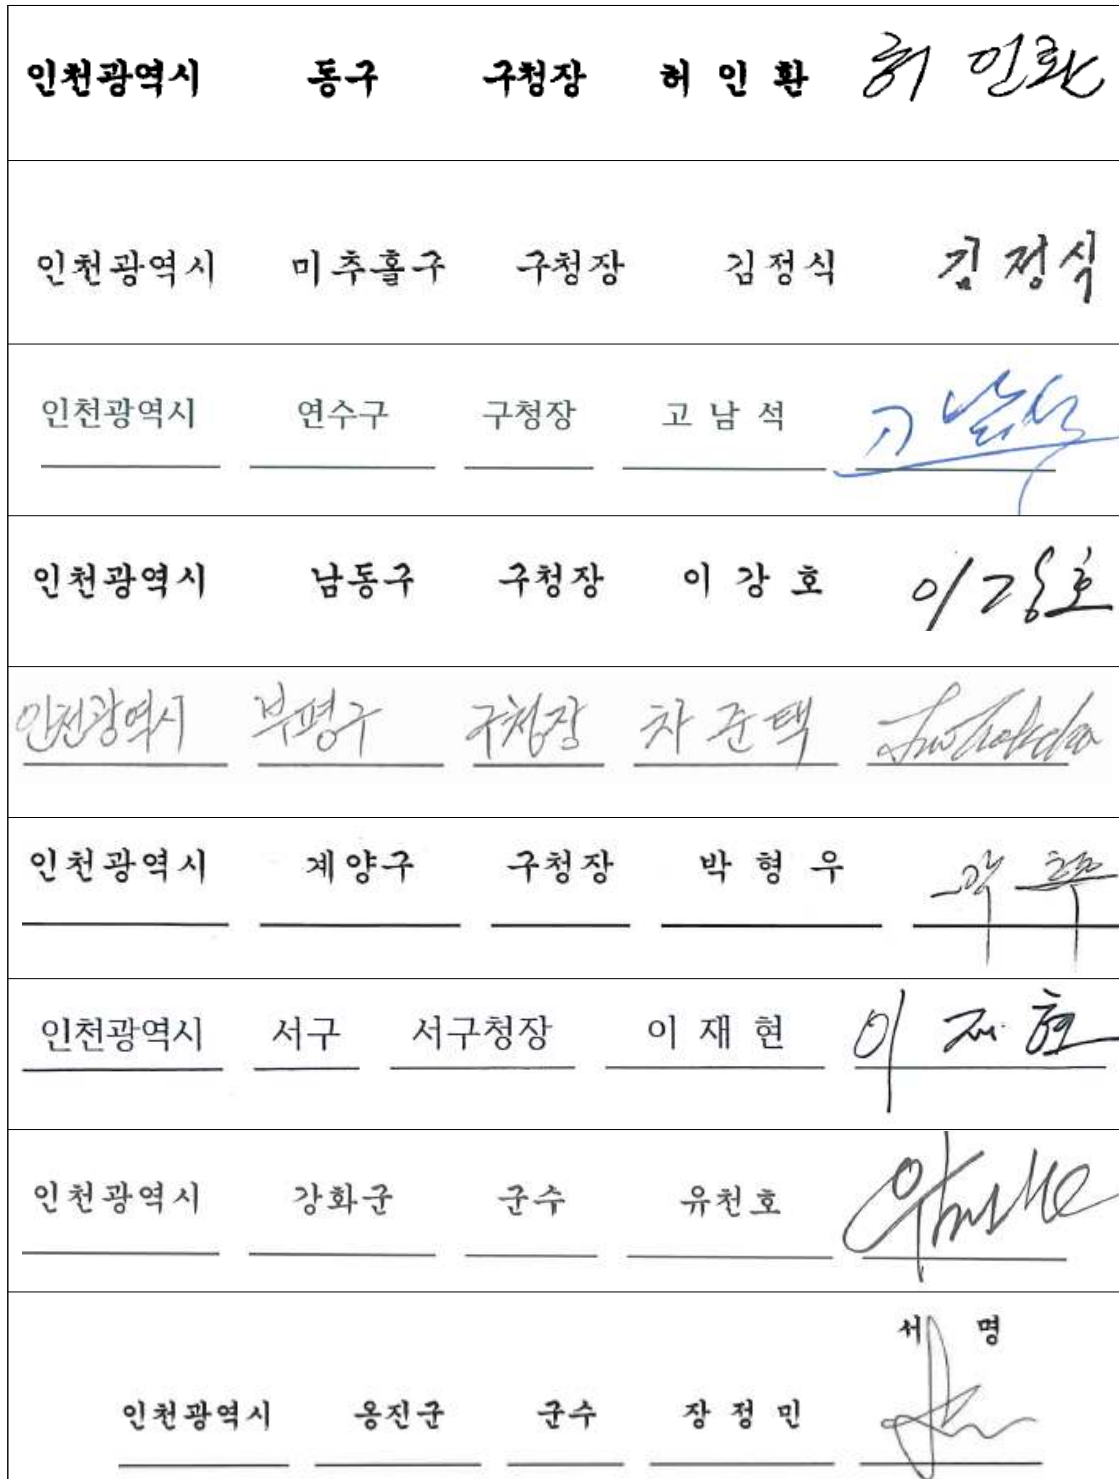 인천광역시 동구 구청장 허 인 환 허 인환
인천광역시 미추홀구 구청장 김정식 김정식
인천광역시 연수구 구청장 고 남 석 고남석
인천광역시 남동구 구청장 이 강 호 이강호
인천광역시 부평구 구청장 차 준 택
인천광역시 계양구 구청장 박 형 우
인천광역시 서구 서구청장 이 재 현 이 재현
인천광역시 강화군 군수 유천호
서 명
인천광역시 옹진군 군수 장 정 민